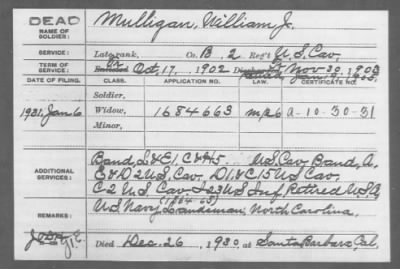 DEAD
NAME OF SOLDIER: Mulligan, William J.
SERVICE: Late rank, Co. B, 2 Reg't U.S. Cav.
TERM OF SERVICE: Enlisted Oct. 17, 1902 Nov 30, 1905
DATE OF FILING. CLASS. APPLICATION NO. LAW. CERTIFICATE NO.
Soldier,
1931, Jan 6 Widow, 1684663 a-10-30-31
Minor,
ADDITIONAL SERVICES: Band, L & E 1, C & H 5 U.S. Cav. Band, A,
E & D 2 U.S. Cav. D 1 & C 15 U.S. Cav.
C 2 U.S. Cav & 23 U.S. Inf. Retired U.S.A.
REMARKS: U.S. Navy Landsman, North Carolina.
Died Dec. 26, 1930, at Santa Barbara, Cal.